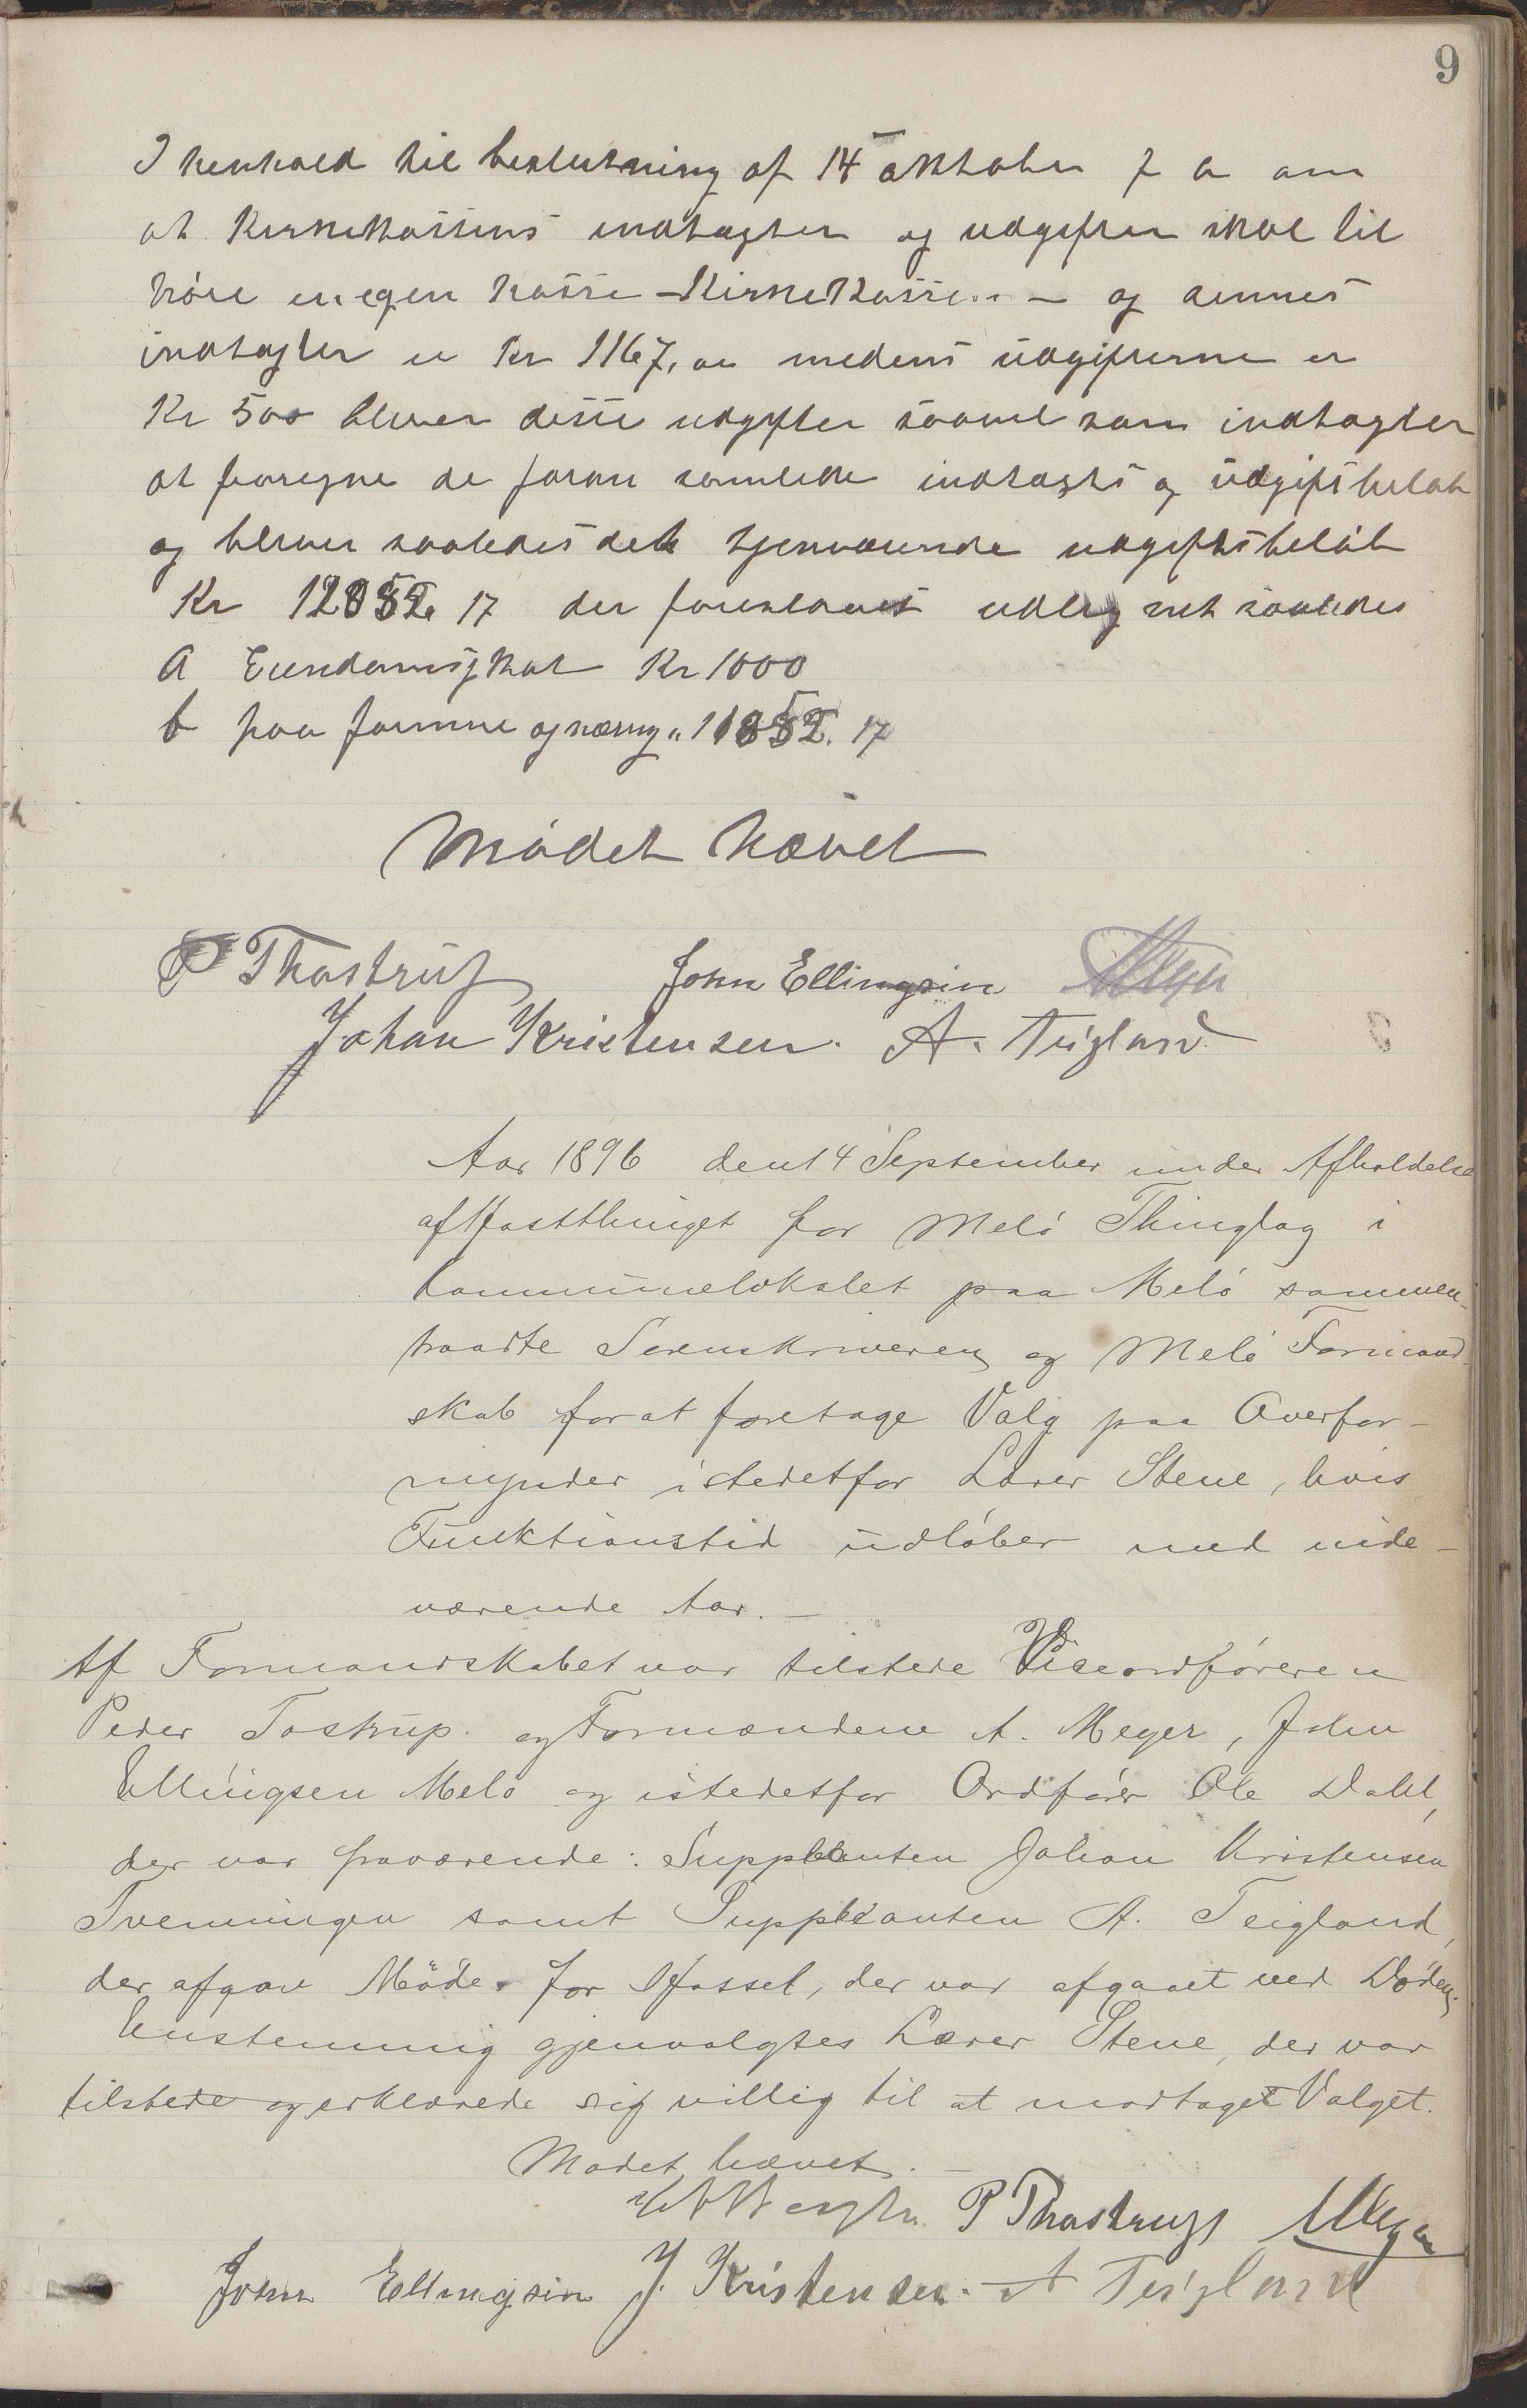 9
I henhold til beslutning af 14 oktober f a om
at Kirkekassens indtægter og udgifter skal til
høre en egen kasse - Kirkekassen - og dennes
indtægter er Kr 1167, medens udgifterne er
Kr 500 bliver disse udgifter saavel som indtægter
at fraregne de foran samlede indtægts og udgiftsbeløb
og bliver saaledes det gjenværende udgiftsbeløb
Kr 12852. 17 der foreslaaes udlignet saaledes
A Eiendomsskat Kr 1000
b paa formue og næring " 11852. 17
Mødet hævet
P Thostrup John Ellingsen AMeyer
Johan Kristensen. A. Teigland
Aar 1896 den 14 September under Afholdelse
af Høstthinget for Melö Thinglag i
Kommunelokalet paa Melö sammen-
traadte Sorenskriveren og Melö Formand-
skab for at foretage Valg paa Overfor-
mynder istedetfor Lærer Stene, hvis
Funktionstid udløber med inde-
værende Aar. -
Af Formandskabet var tilstede Viceordføreren
Peder Tostrup og Formændene A. Meyer, John
Ellingsen Melö og istedetfor Ordfører Ole Dahl,
der var fraværende: Suppleanten Johan Kristensen
Tvenningen samt Suppleanten A. Teigland,
der afgav Møde for Hassel, der var afgaaet ved Døden.
Enstemmig gjenvalgtes Lærer Stene, der var
tilstede og erklærede sig villig til at modtaget Valget.
Mødet hævet. -
P Thostrup AMeyer
John Ellingsen J. Kristensen. A Teigland